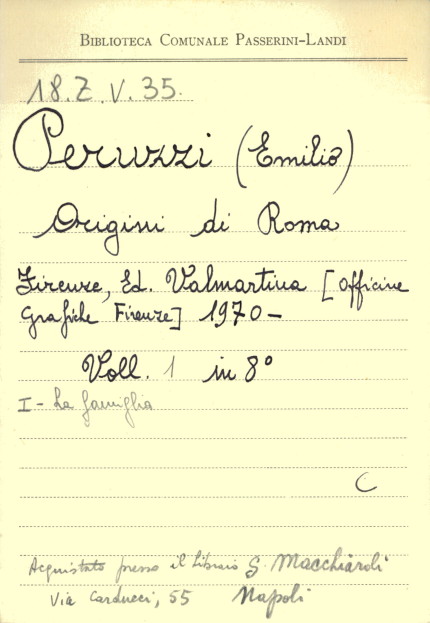 BIBLIOTECA COMUNALE PASSERINI-LANDI
18.Z.V.35.
Peruzzi (Emilio)
Origini di Roma
Firenze, Ed. Valmartina [Officine
Grafiche Firenze] 1970-
Voll. 1 in 8°
I - La famiglia
C
Acquistato presso il libraio G. Macchiaroli
Via Carducci, 55 Napoli